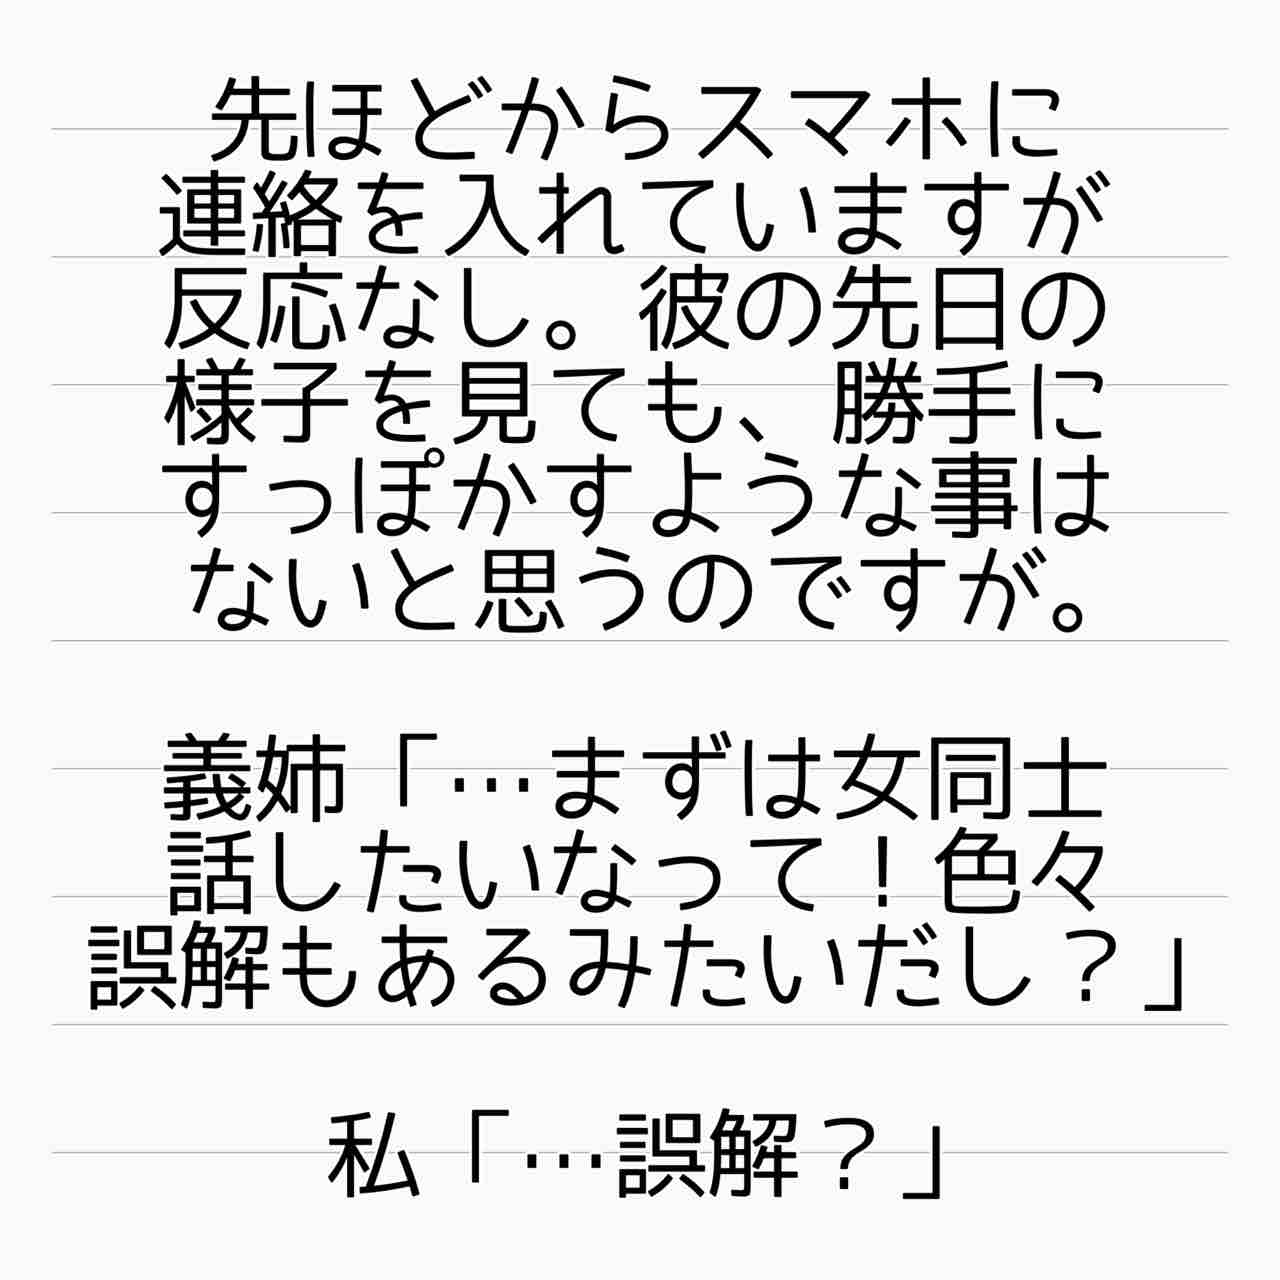 先ほどからスマホに
連絡を入れていますが
反応なし。彼の先日の
様子を見ても、勝手に
すっぽかすような事は
ないと思うのですが。
義姉「…まずは女同士
話したいなって！色々
誤解もあるみたいだし？」
私「…誤解？」